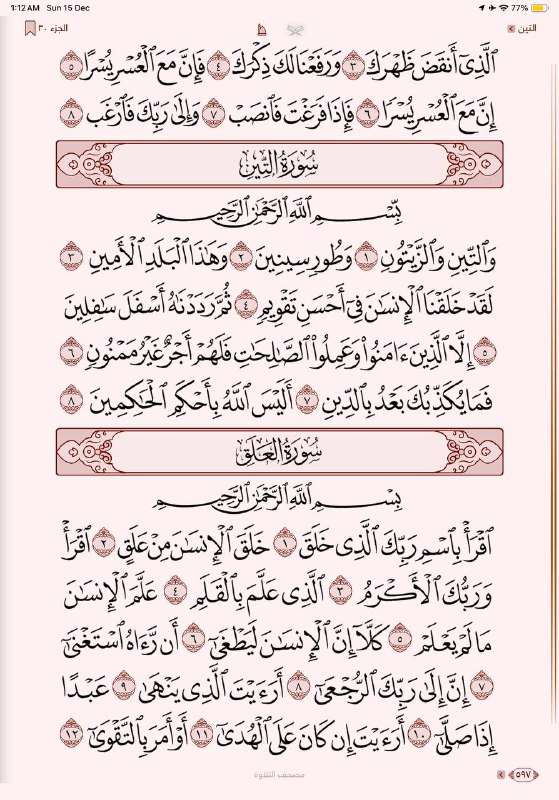 1:12 AM Sun 15 Dec 77%
التين الجزء ٣٠
ٱلَّذِىٓ أَنقَضَ ظَهْرَكَ ٣ وَرَفَعْنَا لَكَ ذِكْرَكَ ٤ فَإِنَّ مَعَ ٱلْعُسْرِ يُسْرًا ٥
إِنَّ مَعَ ٱلْعُسْرِ يُسْرًا ٦ فَإِذَا فَرَغْتَ فَٱنصَبْ ٧ وَإِلَىٰ رَبِّكَ فَٱرْغَب ٨
سُورَةُ التِّينِ
بِسْمِ ٱللَّهِ ٱلرَّحْمَٰنِ ٱلرَّحِيمِ
وَٱلتِّينِ وَٱلزَّيْتُونِ ١ وَطُورِ سِينِينَ ٢ وَهَٰذَا ٱلْبَلَدِ ٱلْأَمِينِ ٣
لَقَدْ خَلَقْنَا ٱلْإِنسَٰنَ فِىٓ أَحْسَنِ تَقْوِيمٍ ٤ ثُمَّ رَدَدْنَٰهُ أَسْفَلَ سَٰفِلِينَ
٥ إِلَّا ٱلَّذِينَ ءَامَنُوا۟ وَعَمِلُوا۟ ٱلصَّٰلِحَٰتِ فَلَهُمْ أَجْرٌ غَيْرُ مَمْنُونٍ ٦
فَمَا يُكَذِّبُكَ بَعْدُ بِٱلدِّينِ ٧ أَلَيْسَ ٱللَّهُ بِأَحْكَمِ ٱلْحَٰكِمِينَ ٨
سُورَةُ العَلَقِ
بِسْمِ ٱللَّهِ ٱلرَّحْمَٰنِ ٱلرَّحِيمِ
ٱقْرَأْ بِٱسْمِ رَبِّكَ ٱلَّذِى خَلَقَ ١ خَلَقَ ٱلْإِنسَٰنَ مِنْ عَلَقٍ ٢ ٱقْرَأْ
وَرَبُّكَ ٱلْأَكْرَمُ ٣ ٱلَّذِى عَلَّمَ بِٱلْقَلَمِ ٤ عَلَّمَ ٱلْإِنسَٰنَ
مَا لَمْ يَعْلَمْ ٥ كَلَّآ إِنَّ ٱلْإِنسَٰنَ لَيَطْغَىٰٓ ٦ أَن رَّءَاهُ ٱسْتَغْنَىٰٓ
٧ إِنَّ إِلَىٰ رَبِّكَ ٱلرُّجْعَىٰٓ ٨ أَرَءَيْتَ ٱلَّذِى يَنْهَىٰ ٩ عَبْدًا
إِذَا صَلَّىٰٓ ١٠ أَرَءَيْتَ إِن كَانَ عَلَى ٱلْهُدَىٰٓ ١١ أَوْ أَمَرَ بِٱلتَّقْوَىٰٓ ١٢
٥٩٧ مصحف التلاوة